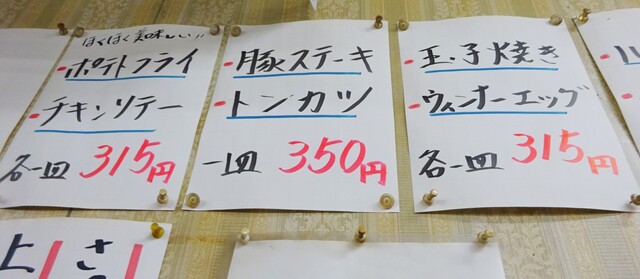 ほくほく美味しい!!
・ポテトフライ
・チキンソテー
各一皿 315円
・豚ステーキ
・トンカツ
一皿 350円
・玉子焼き
・ウィンナーエッグ
各一皿 315円